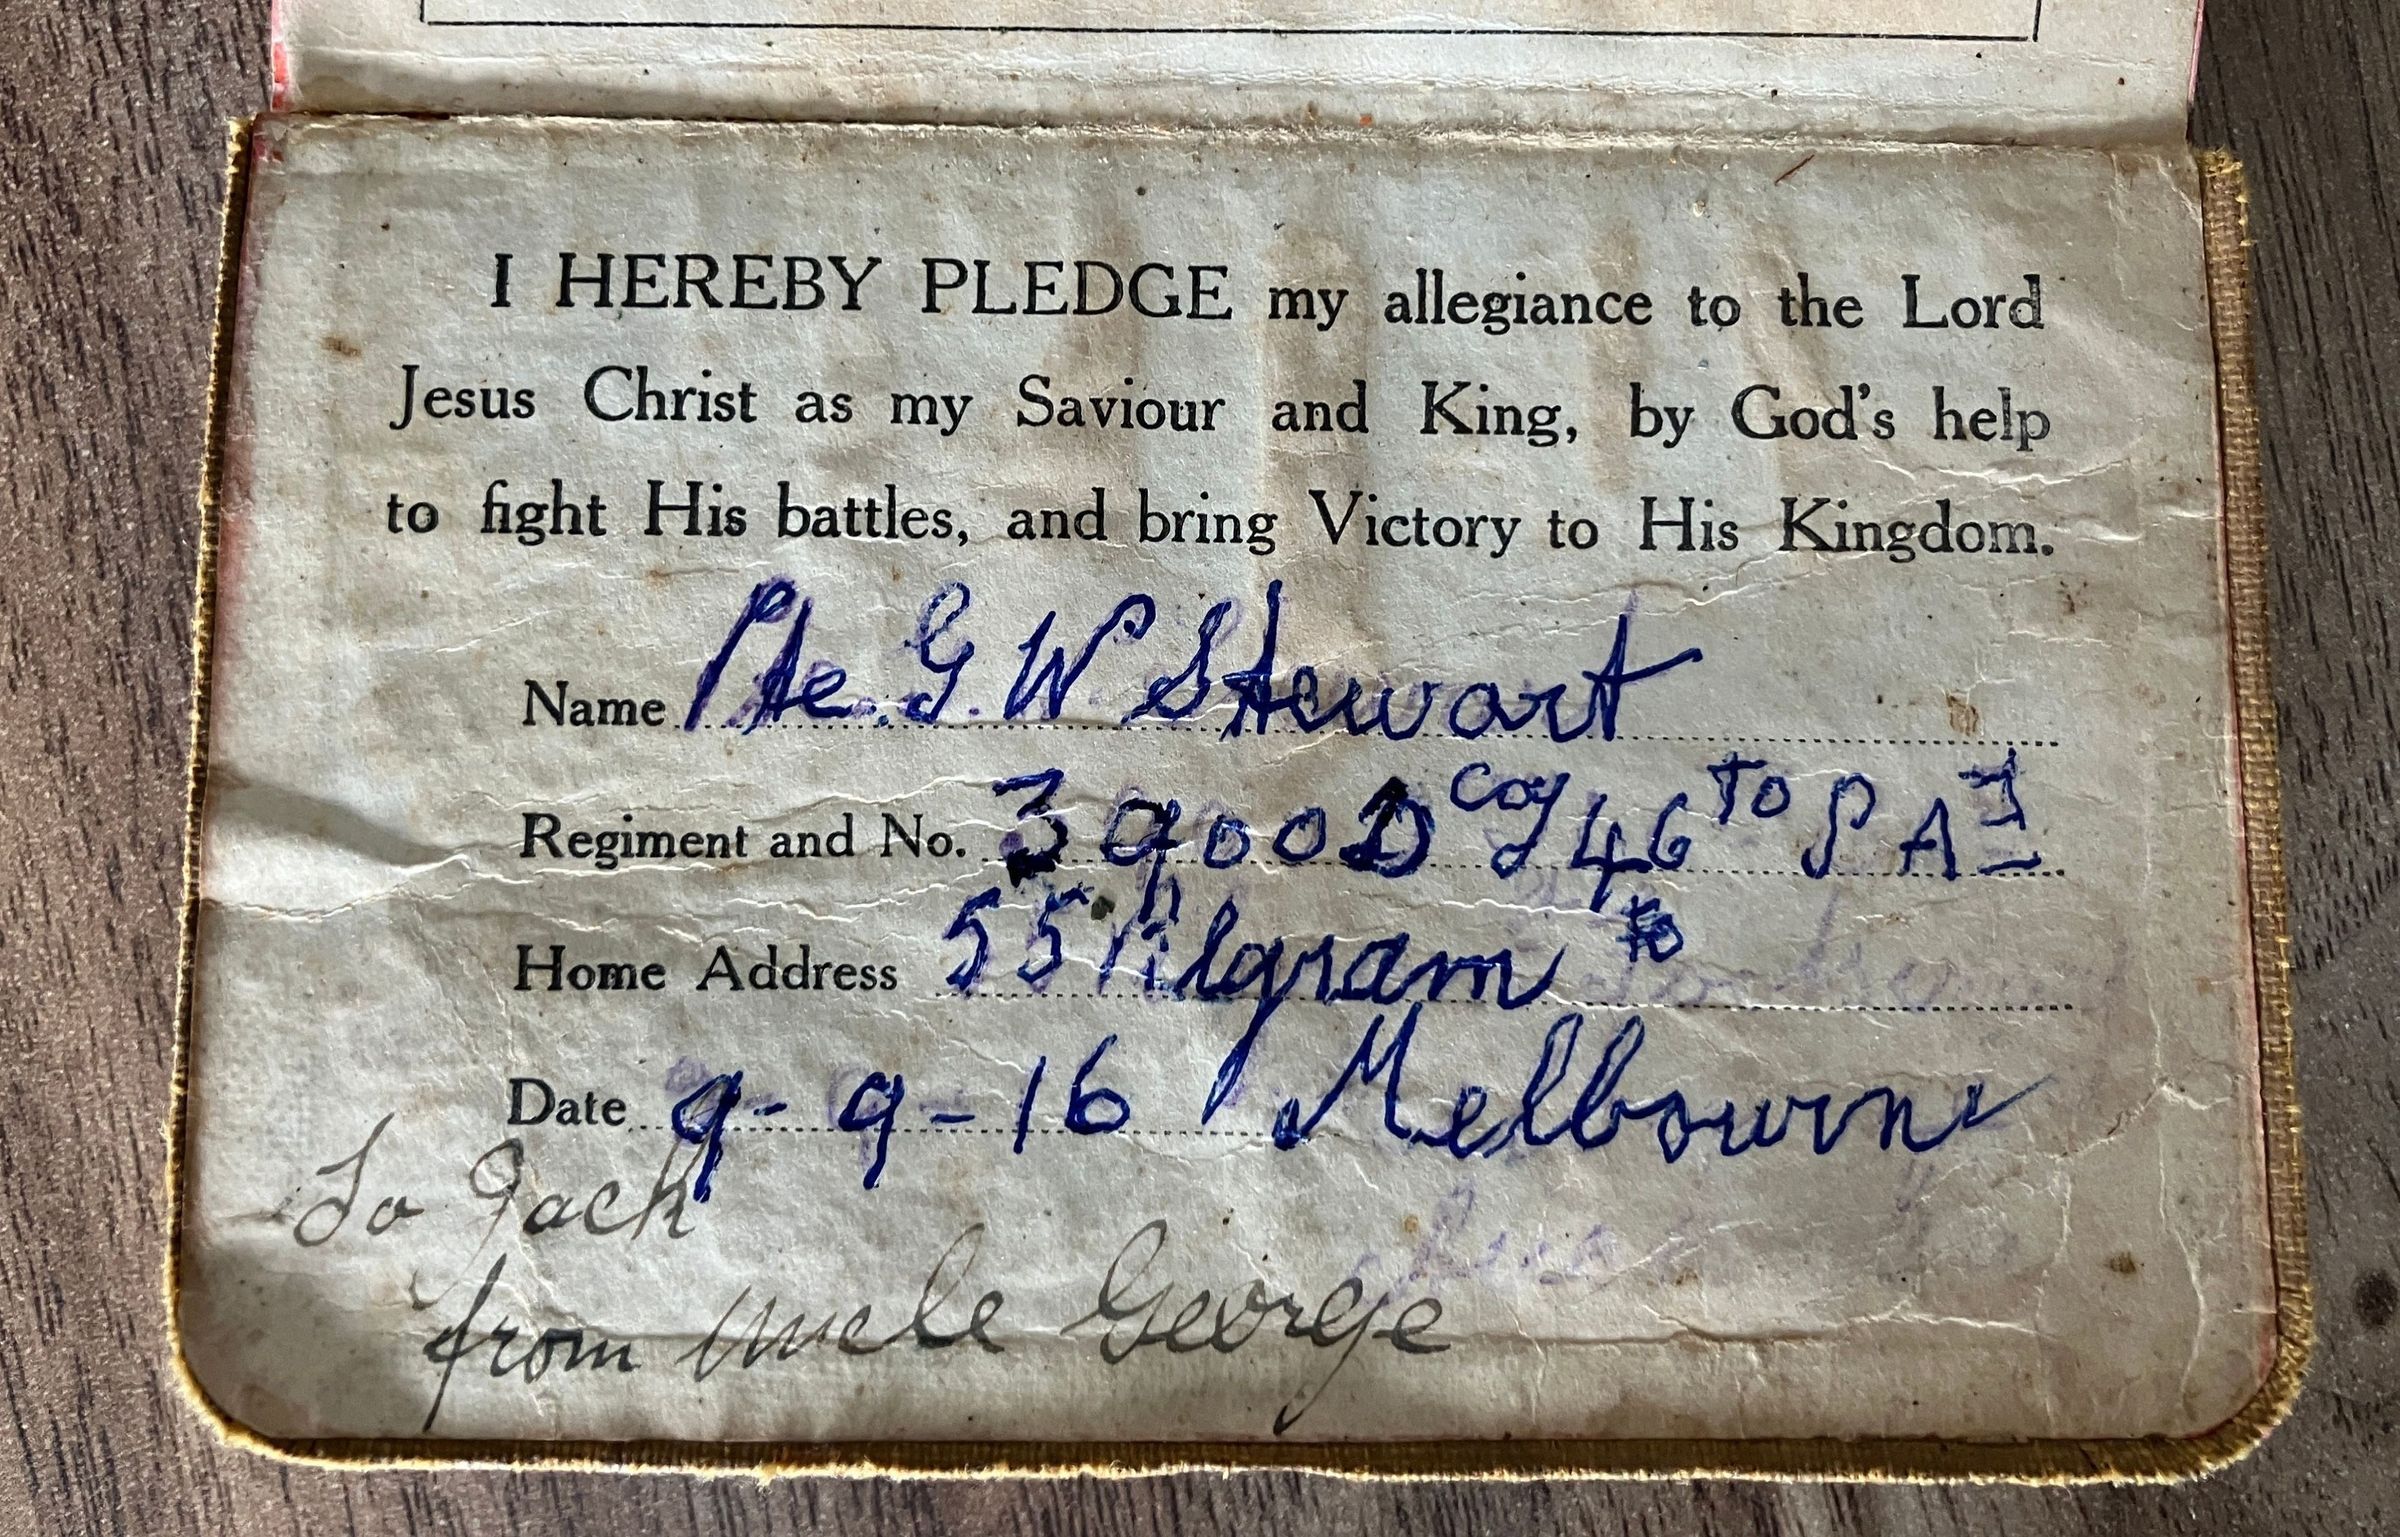 I HEREBY PLEDGE my allegiance to the Lord
Jesus Christ as my Saviour and King, by God's help
to fight His battles, and bring Victory to His Kingdom.
Name Pte. G. W. Stewart
Regiment and No. 3900 D Coy 46
Home Address 55 Pilgram
Date 9-9-16 Melbourne
To Jack
from Uncle George